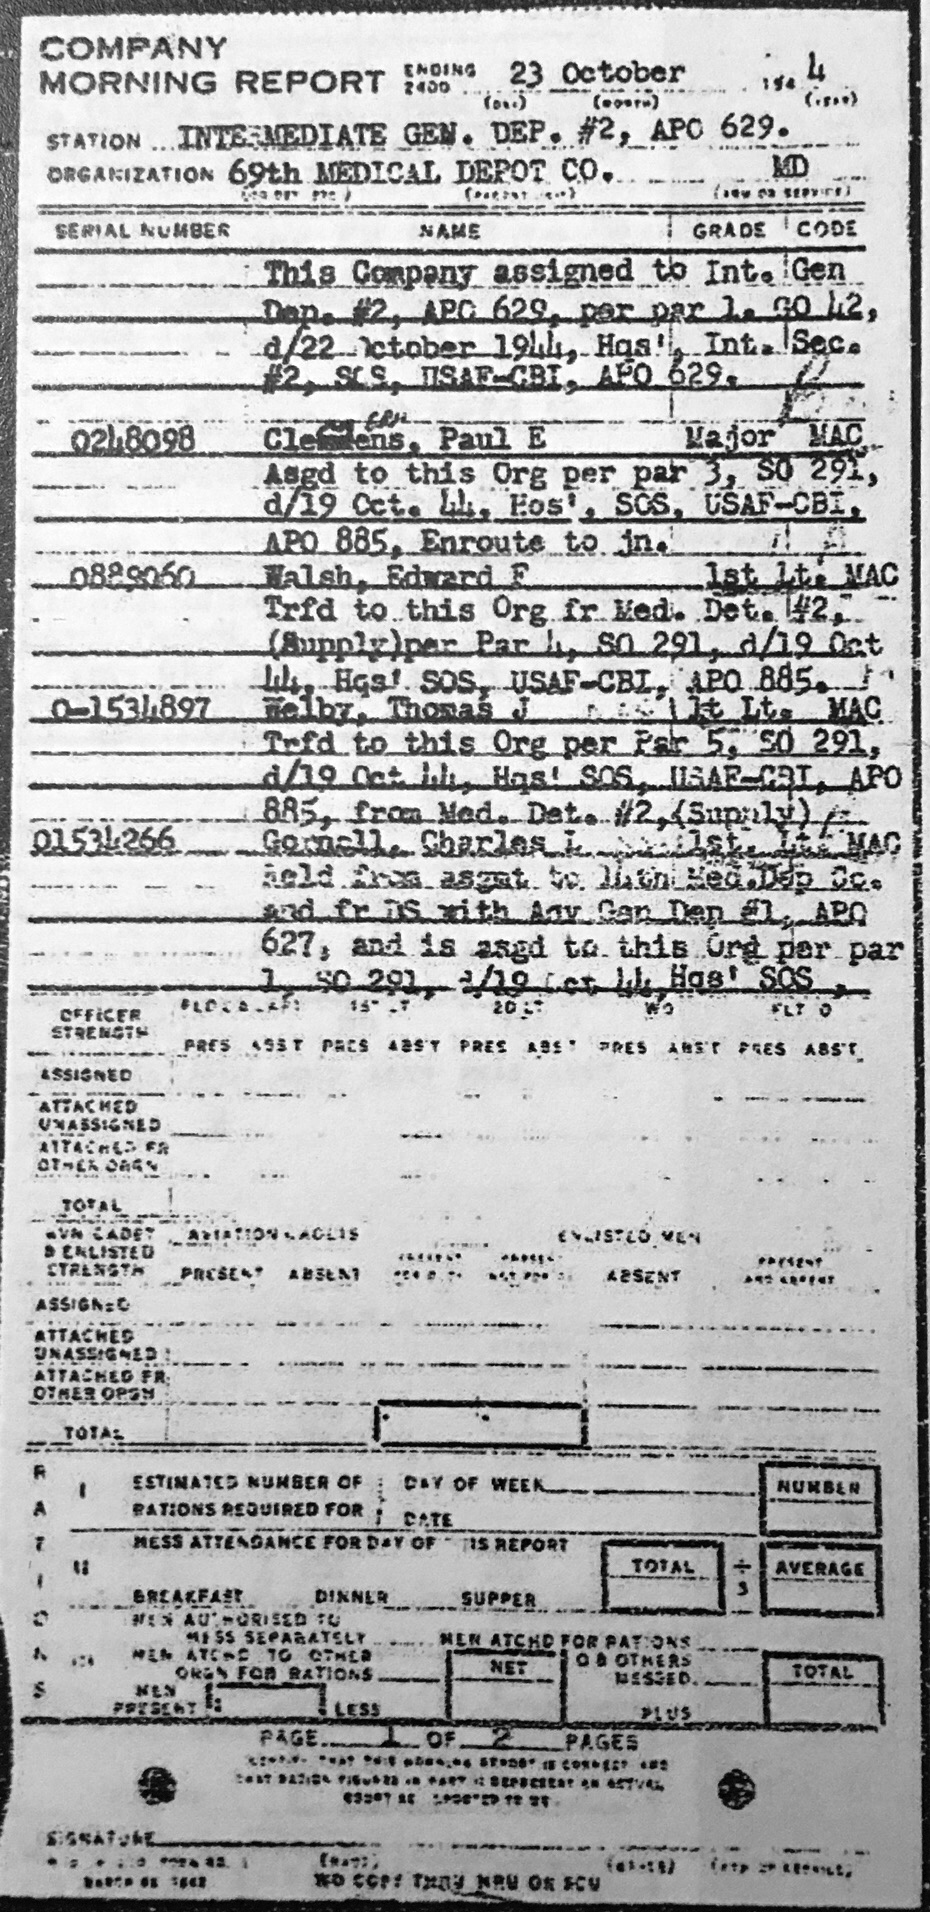 COMPANY
MORNING REPORT ENDING 2400 23 October 194 4
(DAY) (MONTH) (YEAR)
STATION INTERMEDIATE GEN. DEP. #2, APO 629.
ORGANIZATION 69th MEDICAL DEPOT CO. MD
(ARM OR SERVICE)
SERIAL NUMBER NAME GRADE CODE
This Company assigned to Int. Gen
Dep. #2, APO 629, per par 1. GO 42,
d/22 October 1944, Hqs', Int. Sec.
#2, SOS, USAF-CBI, APO 629.
0248098 Clemens, Paul E Major MAC
Asgd to this Org per par 3, SO 291,
d/19 Oct. 44, Hqs', SOS, USAF-CBI,
APO 885, Enroute to jn.
0889060 Walsh, Edward F 1st Lt. MAC
Trfd to this Org fr Med. Det. #2,
(Supply)per Par 4, SO 291, d/19 Oct
44, Hqs' SOS, USAF-CBI, APO 885.
O-1534897 Welby, Thomas J 1t Lt. MAC
Trfd to this Org per Par 5, SO 291,
d/19 Oct 44, Hqs' SOS, USAF-CBI, APO
885, from Med. Det. #2,(Supply)
01534266 Gornall, Charles L 1st. Lt. MAC
Reld from asgmt to 14th Med.Dep Co.
and fr DS with Adv Gen Dep #1, APO
627, and is asgd to this Org per par
1, SO 291, d/19 Oct 44,Hqs' SOS ,
OFFICER STRENGTH 1ST LT 2D LT WO FLT O
PRES ABS'T PRES ABS'T PRES ABS'T PRES ABS'T PRES ABS'T
ASSIGNED
ATTACHED
UNASSIGNED
ATTACHED FR
OTHER ORGN
TOTAL
AVN CADET & ENLISTED STRENGTH AVIATION CADETS ENLISTED MEN
PRESENT ABSENT ABSENT PRESENT AND ABSENT
ASSIGNED
ATTACHED
UNASSIGNED
ATTACHED FR
OTHER ORGN
TOTAL
RATIONS
I ESTIMATED NUMBER OF DAY OF WEEK NUMBER
RATIONS REQUIRED FOR DATE
II MESS ATTENDANCE FOR DAY OF THIS REPORT TOTAL ÷ 3 AVERAGE
BREAKFAST DINNER SUPPER
III MEN AUTHORISED TO
MESS SEPARATELY MEN ATCHD FOR RATIONS
MEN ATCHD TO OTHER
ORGN FOR RATIONS NET O & OTHERS MESSED TOTAL
MEN PRESENT LESS PLUS
PAGE 1 OF 2 PAGES
THAT THIS MORNING REPORT IS CORRECT AND
THAT RATION FIGURES IN PART II REPRESENT AN ACTUAL
SIGNATURE
(NAME) (GRADE)
WD COPY THRU MRU OR SCU